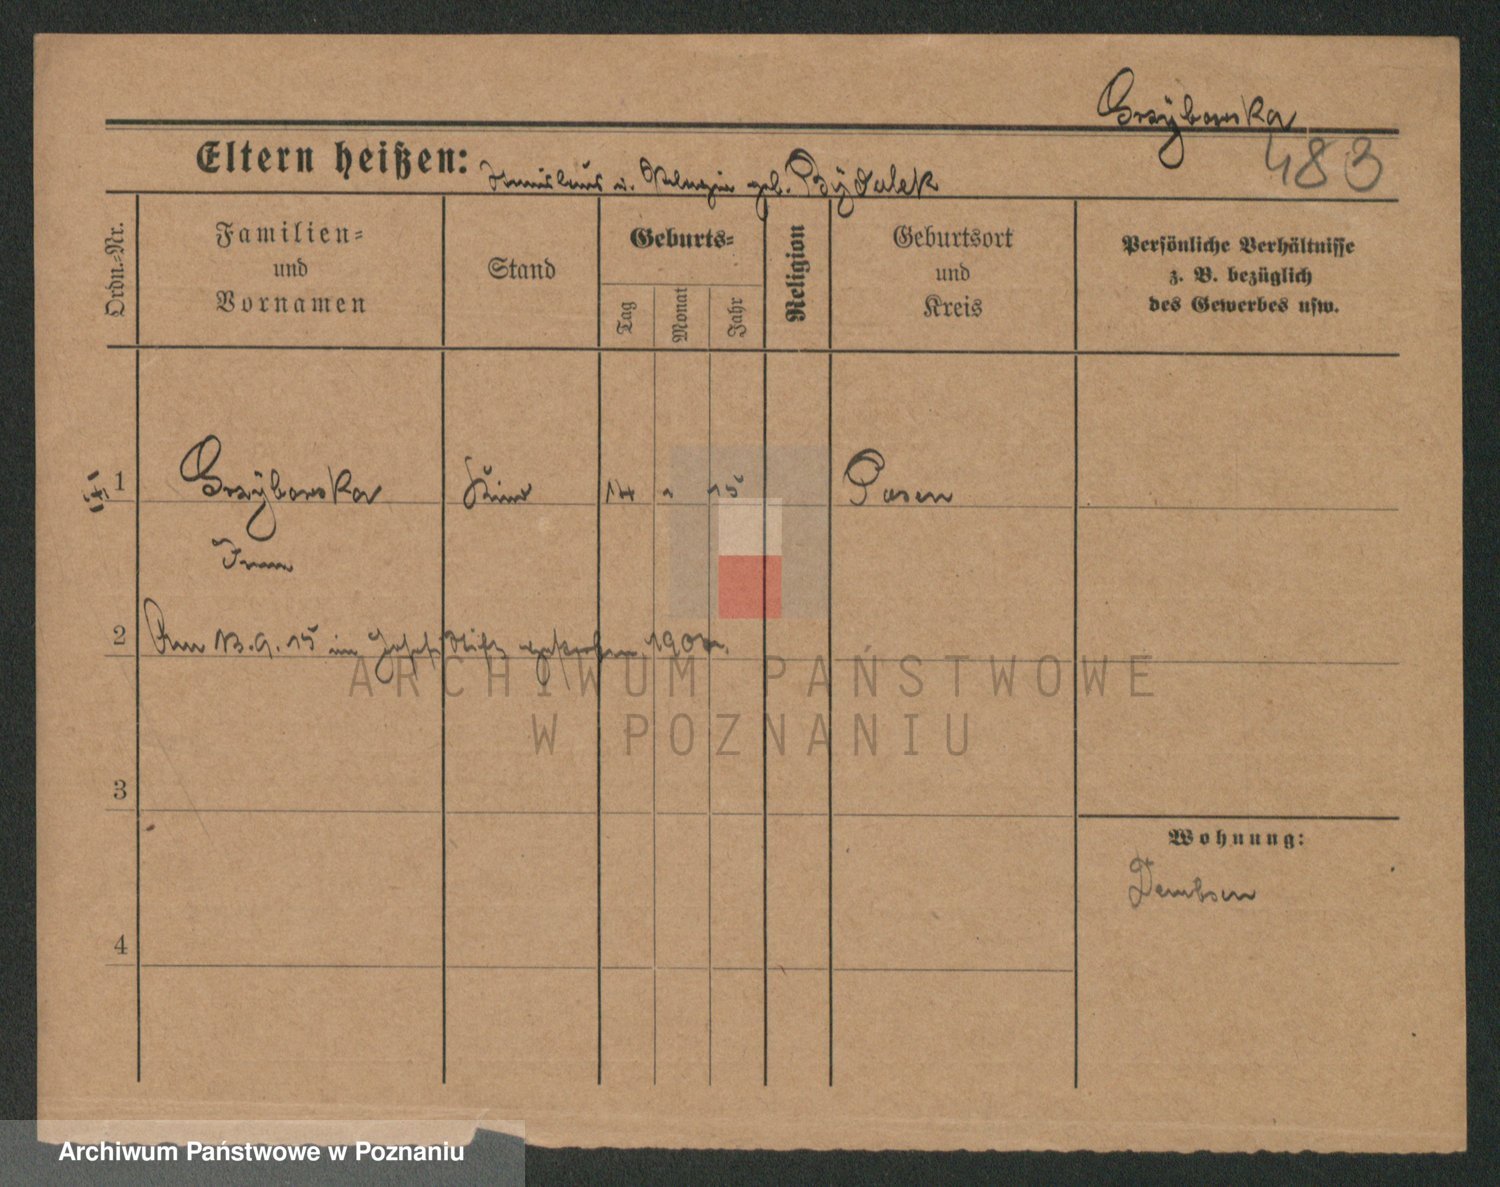 Grzybowska
483
Eltern heißen: Stanislaus u. Pelagia geb. Bydalek
Ordn.-Nr.
Familien-
und
Vornamen
Stand
Geburts-
Tag
Monat
Jahr
Religion
Geburtsort
und
Kreis
Persönliche Verhältnisse
z. B. bezüglich
des Gewerbes usw.
1 Grzybowska Kind 14 15 Posen
Irena
2 Am 13.9.15 im Josef Stift gestorben
3
4
Wohnung:
Dembsen
ARCHIWUM PAŃSTWOWE
W POZNANIU
Archiwum Państwowe w Poznaniu